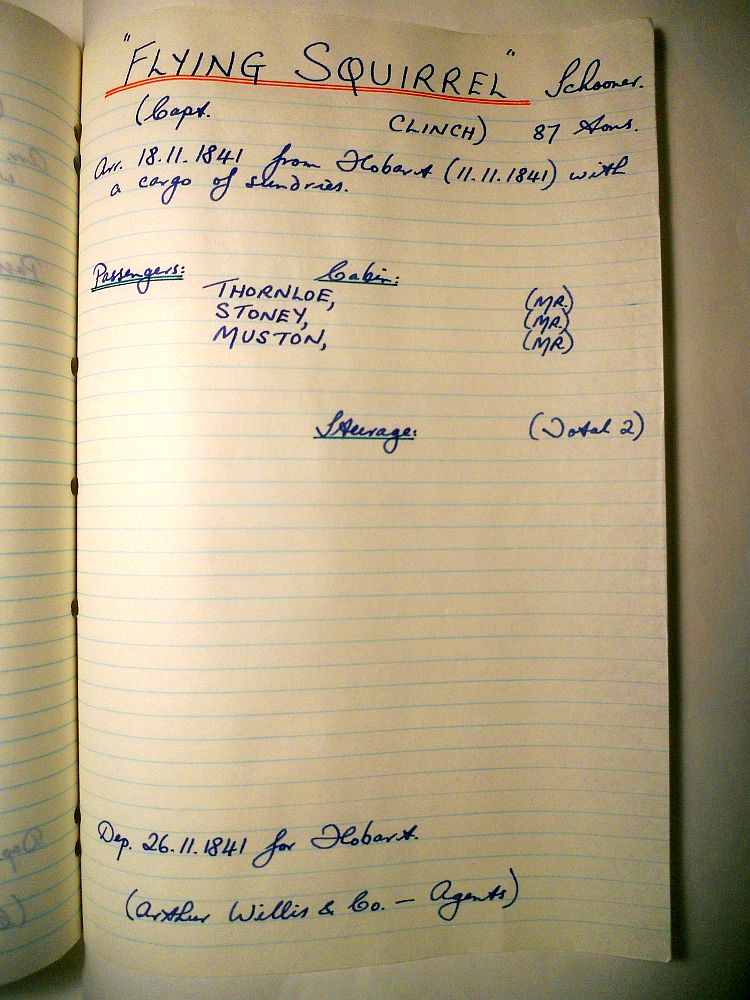 "FLYING SQUIRREL" Schooner.
(Capt. CLINCH) 87 tons.
Arr. 18.11.1841 from Hobart (11.11.1841) with
a cargo of sundries.
Passengers: Cabin:
THORNLOE, (MR.)
STONEY, (MR.)
MUSTON, (MR)
Steerage: (Total 2)
Dep. 26.11.1841 for Hobart.
(Arthur Willis & Co. — Agents)